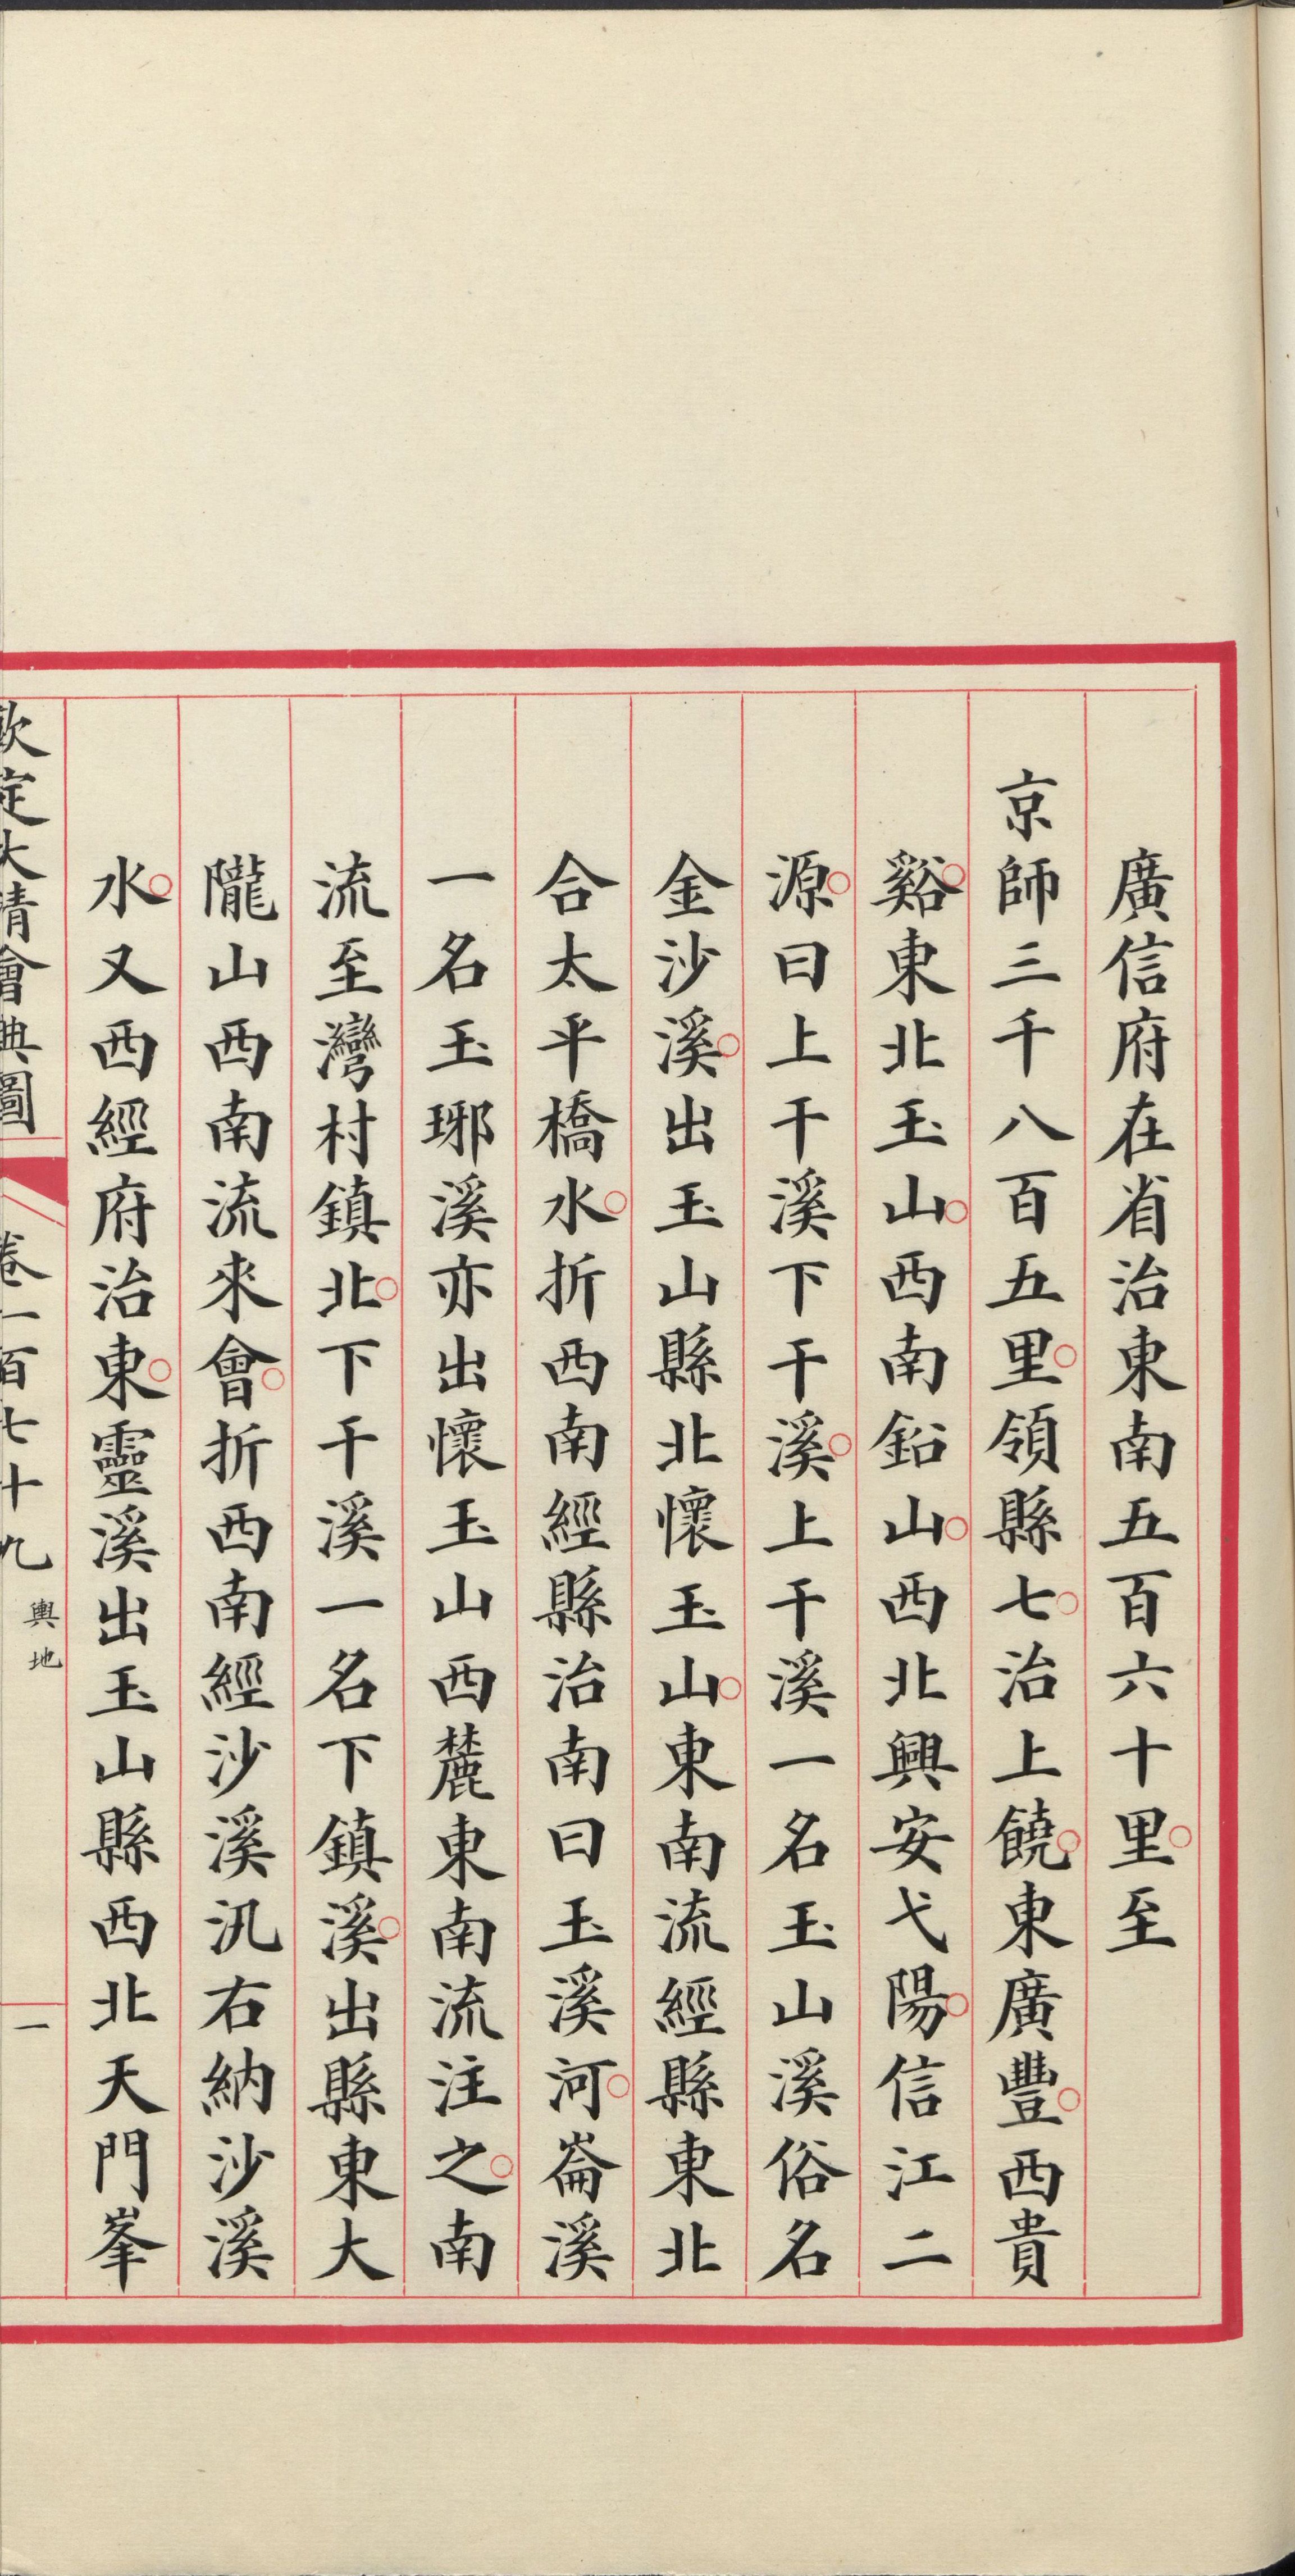 廣信府在省治東南五百六十里至
京師三千八百五里領縣七治上饒東廣豐西貴
谿東北玉山西南鉛山西北興安弋陽信江二
源曰上干溪下干溪上干溪一名玉山溪俗名
金沙溪出玉山縣北懷玉山東南流經縣東北
合太平橋水折西南經縣治南曰玉溪河崙溪
一名玉琊溪亦出懷玉山西麓東南流注之南
流至灣村鎮北下干溪一名下鎮溪出縣東大
隴山西南流來會折西南經沙溪汛右納沙溪
水又西經府治東靈溪出玉山縣西北天門峯
欽定大清會典圖 卷一百七十九 輿地 一